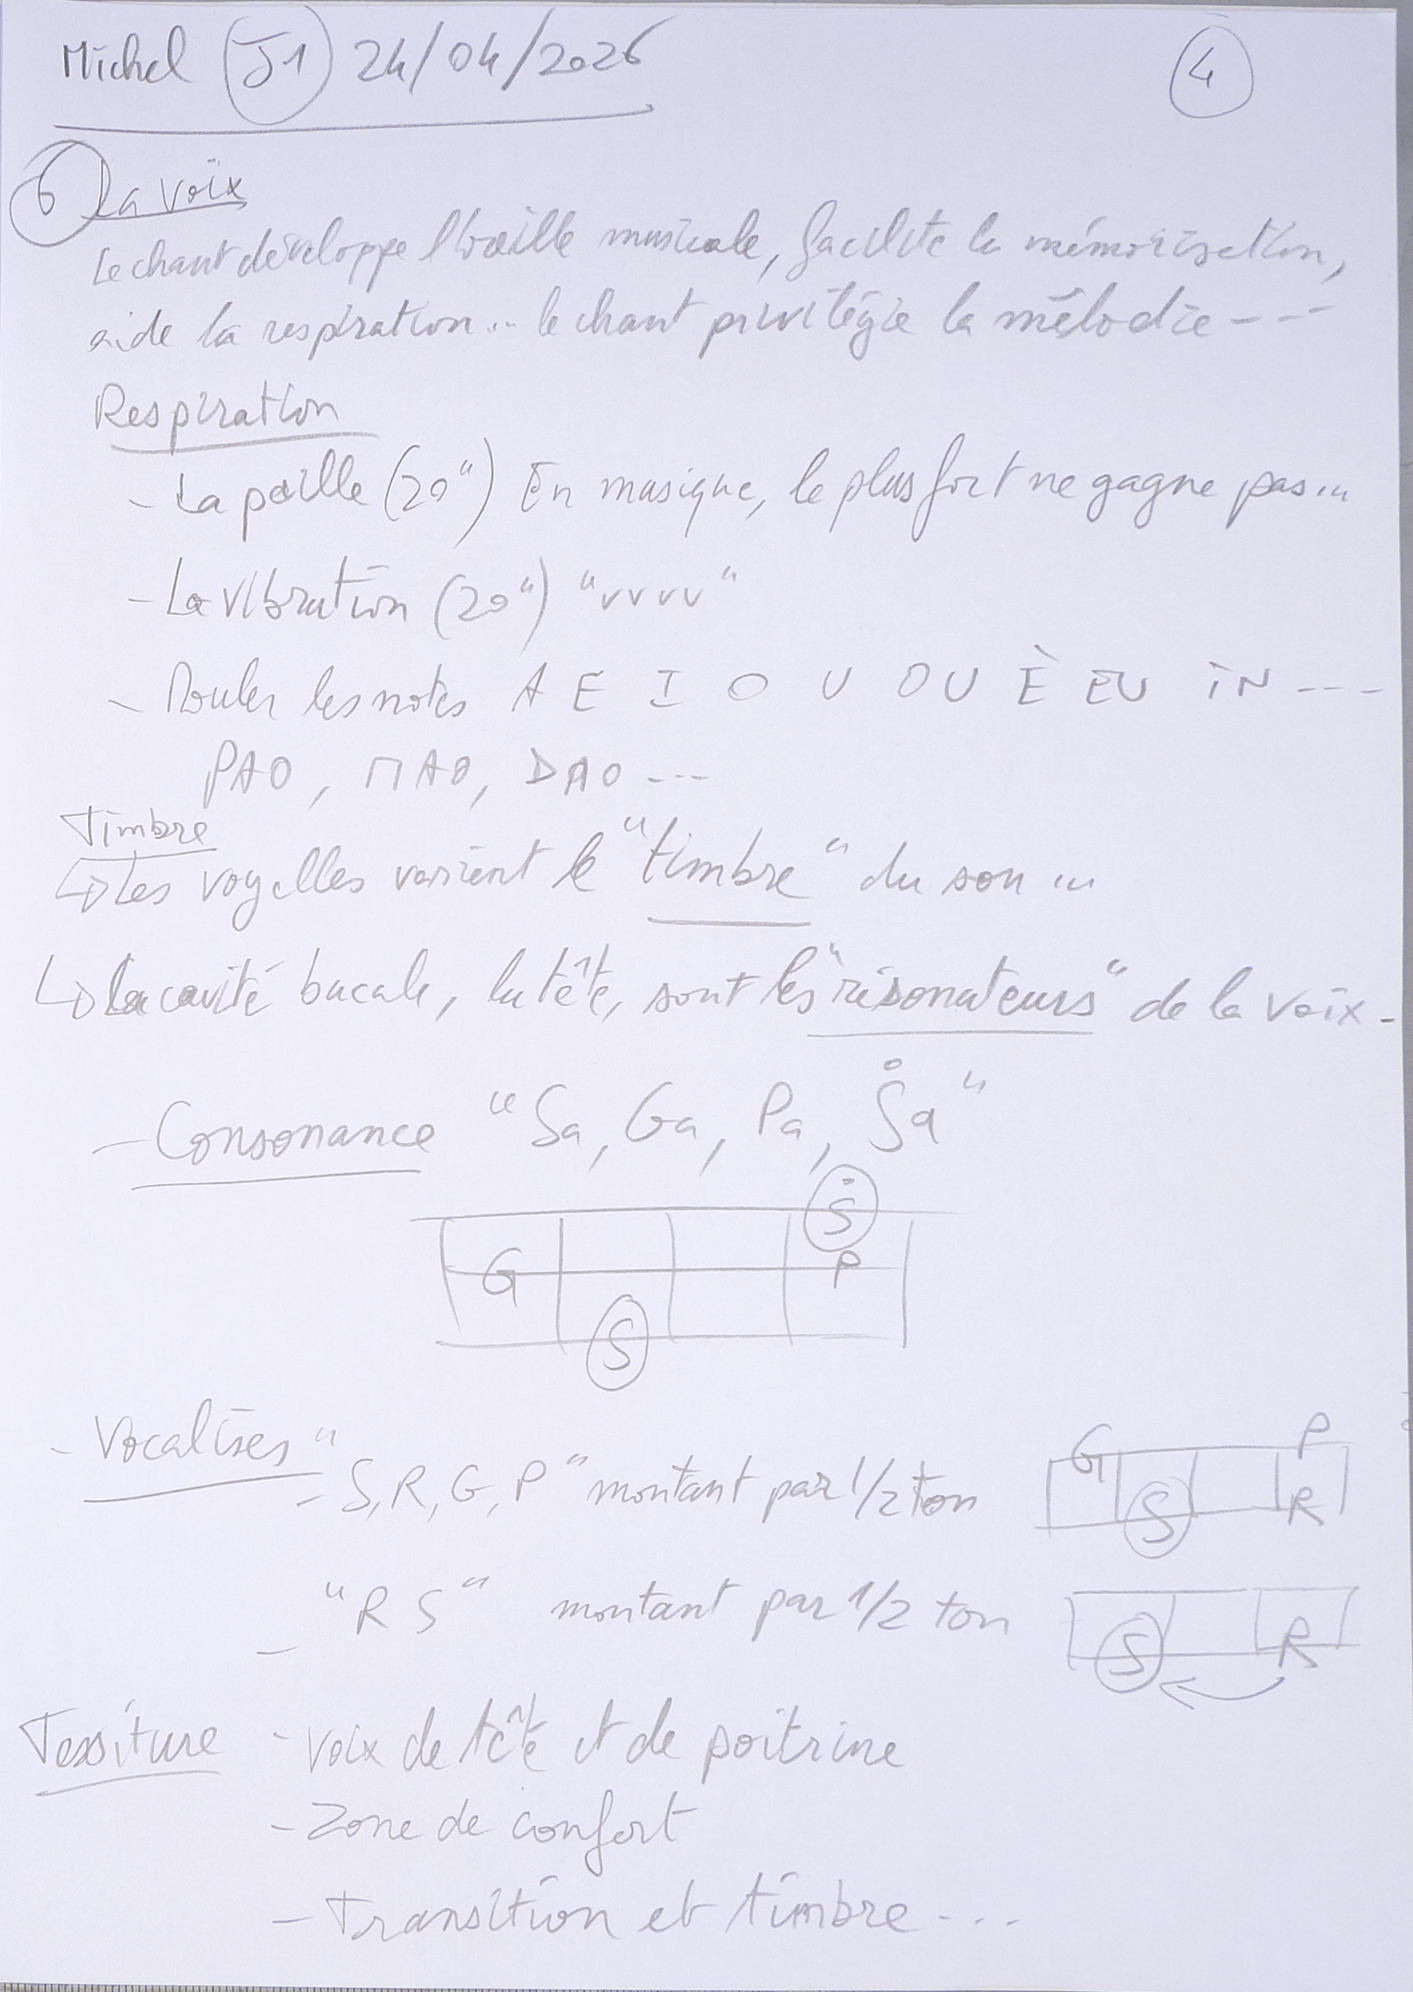 Michel J1 24/04/2026
4
6 La voix
Le chant développe l'oreille musicale, facilite la mémorisation,
aide la respiration... le chant privilégie la mélodie ---
Respiration
- La paille (20") En musique, le plus fort ne gagne pas...
- La vibration (20") "vvvv"
- Rouler les notes A E I O U OU È EU IN ---
PAO, MAO, DAO ---
Timbre
↳ Les voyelles varient le "timbre" du son ...
↳ la cavité bucale, la tête, sont les "résonateurs" de la voix -
- Consonance "Sa, Ga, Pa, Ṡa"
Ṡ
G P
S
- Vocalises
- "S, R, G, P" montant par 1/2 ton
G P
S R
- "R S" montant par 1/2 ton
S R
Tessiture - Voix de tête et de poitrine
- Zone de confort
- Transition et timbre ...